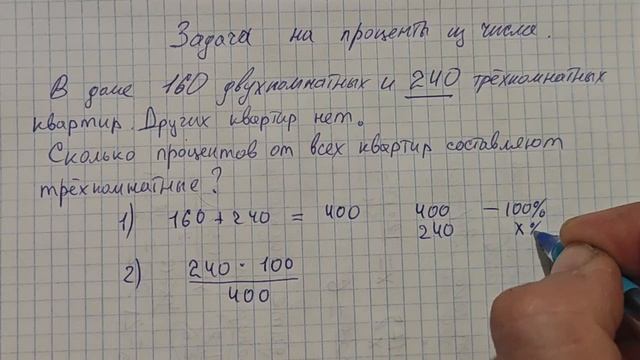 Задача на проценты из числа.
В доме 160 двухкомнатных и 240 трёхкомнатных
квартир. Других квартир нет.
Сколько процентов от всех квартир составляют
трёхкомнатные?
1) 160 + 240 = 400 400 — 100%
240 x%
2) 240 · 100
400